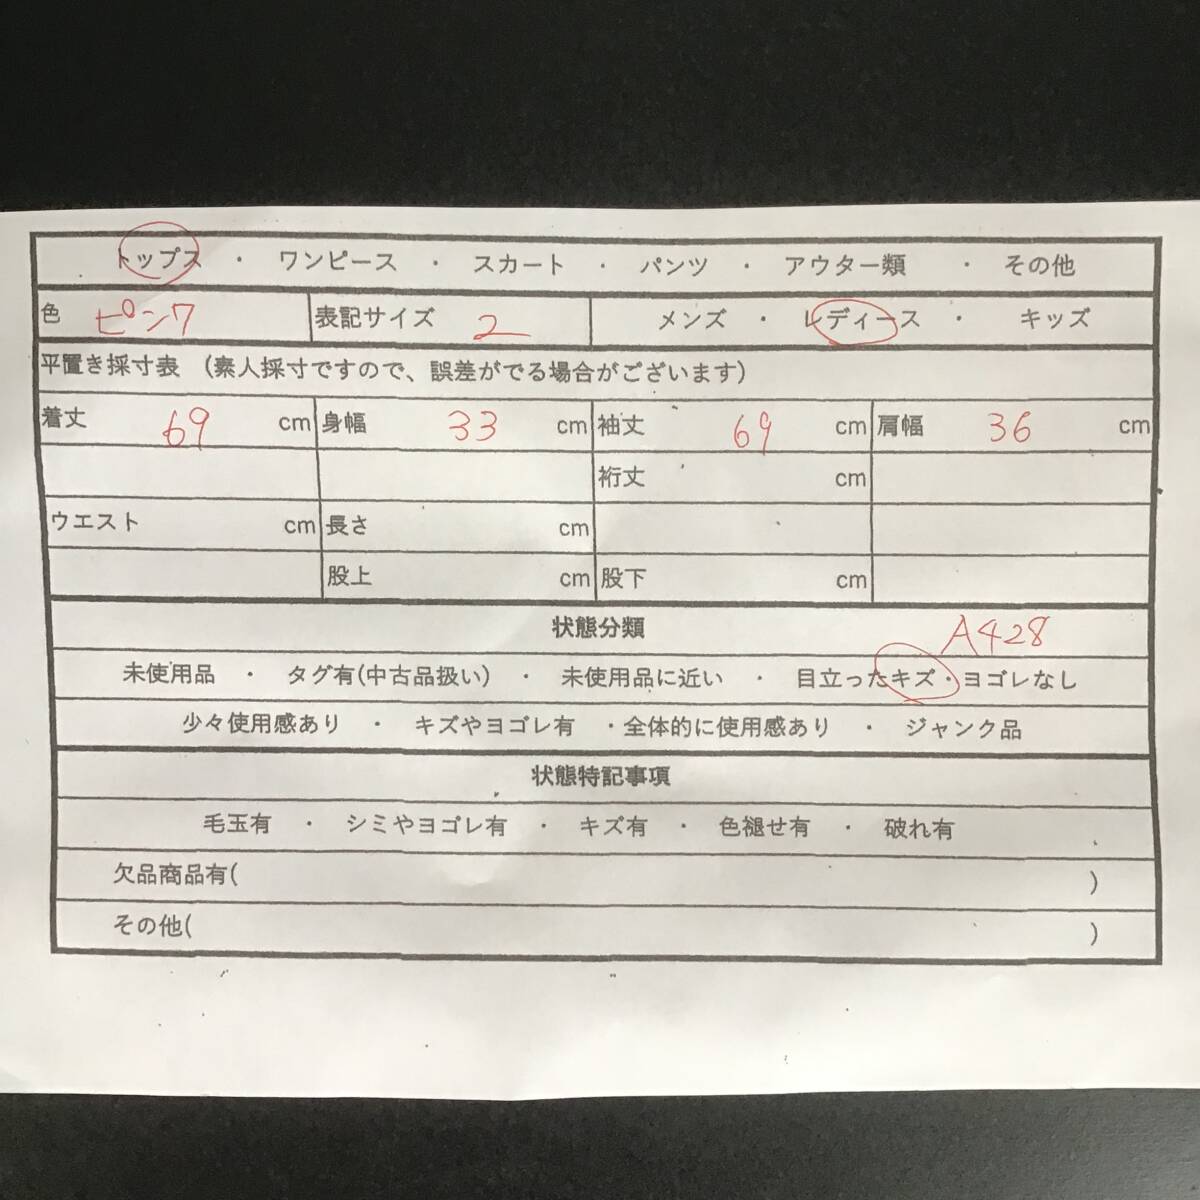 トップス ・ ワンピース ・ スカート ・ パンツ ・ アウター類 ・ その他
色 ピンク 表記サイズ 2 メンズ ・ レディース ・ キッズ
平置き採寸表 (素人採寸ですので、誤差がでる場合がございます)
着丈 69 cm 身幅 33 cm 袖丈 69 cm 肩幅 36 cm
裄丈 cm
ウエスト cm 長さ cm
股上 cm 股下 cm
状態分類 A428
未使用品 ・ タグ有(中古品扱い) ・ 未使用品に近い ・ 目立ったキズ・ヨゴレなし
少々使用感あり ・ キズやヨゴレ有 ・全体的に使用感あり ・ ジャンク品
状態特記事項
毛玉有 ・ シミやヨゴレ有 ・ キズ有 ・ 色褪せ有 ・ 破れ有
欠品商品有( )
その他( )